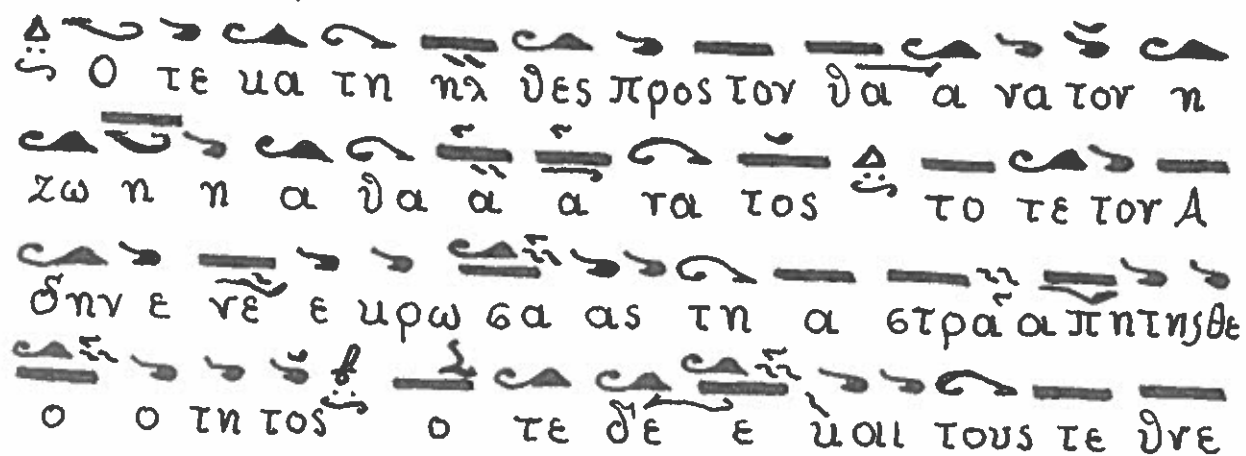 Ο τε κα τη ηλ θες προς τον θα α να τον η
ζω η η α θα α α να τος το τε τον Α
δην ε νε ε κρω σα ας τη α στρα α πη της θε
ο ο τη τος ο τε δε ε και τους τε θνε